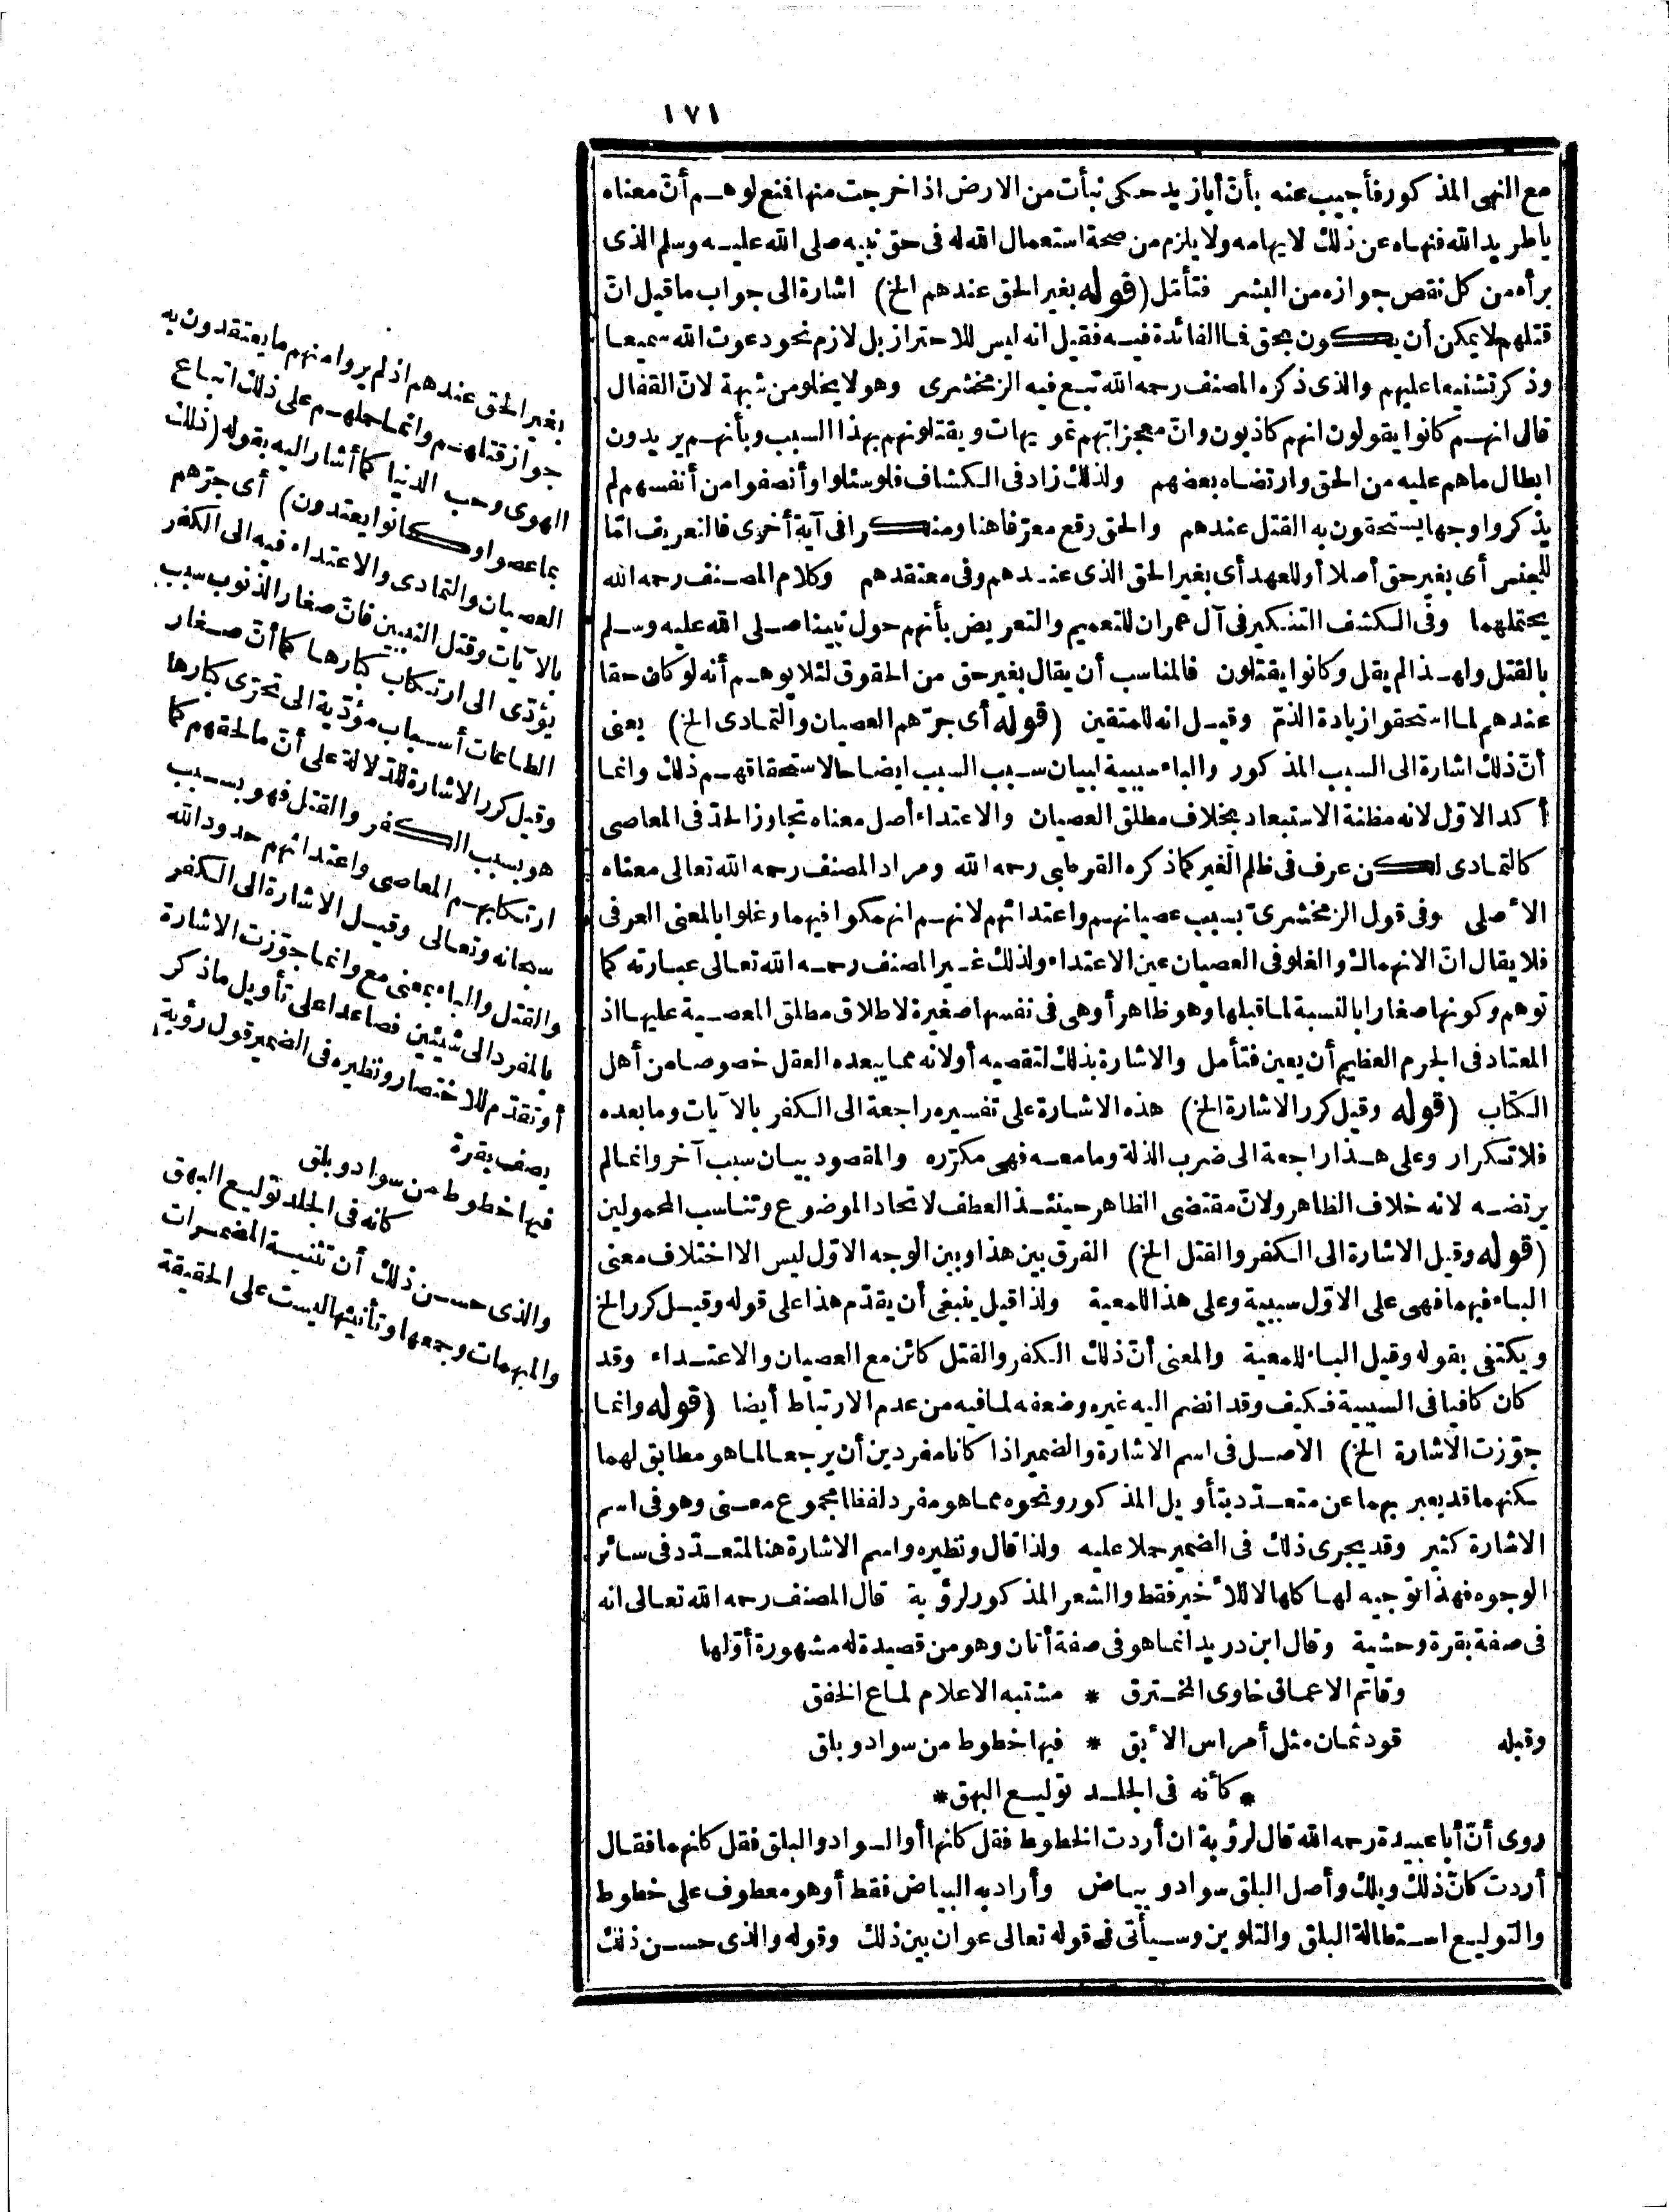 ١٧١
مع النهى المذكور فأجيب عنه بأنّ أبازيد حكى نبأت من الارض اذا خرجت منها فمنع لوهم أنّ معناه
ياطريد الله فنهاه عن ذلك لايهامه ولا يلزم من صحة استعمال الله له فى حق نبيه صلى الله عليه وسلم الذى
برأه من كل نقص جوازه من البشر فتأمّل (قوله بغير الحق عندهم الخ) اشارة الى جواب ما قيل انّ
قتلهم لا يمكن أن يكون بحق فما الفائدة فيه فقيل انه ليس للاحتراز بل لازم نحو دعوت الله سميعا
وذكر تشنيعا عليهم والذى ذكره المصنف رحمه الله تبع فيه الزمخشرى وهو لا يخلو من شبهة لانّ القفال
قال انهم كانوا يقولون انهم كاذبون وانّ معجزاتهم تمويهات ويقتلونهم بهذا السبب وبأنهم يريدون
ابطال ما هم عليه من الحق وارتضاه بعضهم ولذلك زاد فى الكشاف فلوسئلوا وأنصفوا من أنفسهم لم
يذكروا وجها يستحقون به القتل عندهم والحق وقع معرّفا هنا ومنكرا فى آية أخرى فالتعريف امّا
للجنس أى بغير حق أصلا أو للعهد أى بغير الحق الذى عندهم وفى معتقدهم وكلام المصنف رحمه الله
يحتملهما وفى الكشف التنكير فى آل عمران للتعميم والتعريض بأنهم حول نبينا صلى الله عليه وسلم
بالقتل ولهذا لم يقل وكانوا يقتلون فالمناسب أن يقال بغير حق من الحقوق لئلا يوهم أنه لو كان حقا
عندهم لما استحقوا زيادة الذمّ وقيل انه للمتقين (قوله أى جرّهم العصيان والتمادى الخ) يعنى
أنّ ذلك اشارة الى السبب المذكور والباء سببية لبيان سبب السبب ايضاحا لاستحقاقهم ذلك وانما
أكد الاوّل لانه مظنة الاستبعاد بخلاف مطلق العصيان والاعتداء أصل معناه تجاوز الحدّ فى المعاصى
كالتمادى لكن عرف فى ظلم الغير كما ذكره القرطبى رحمه الله ومراد المصنف رحمه الله تعالى معناه
الاصلى وفى قول الزمخشرىّ بسبب عصيانهم واعتدائهم لانهم انهمكوا فيهما وغلوا بالمعنى العرفى
فلا يقال انّ الانهماك والغلو فى العصيان عين الاعتداء ولذلك غير المصنف رحمه الله تعالى عبارته كما
توهم وكونها صغارا بالنسبة لما قبلها وهو ظاهر أو هى فى نفسها صغيرة لاطلاق مطلق المعصية عليها اذ
المعتاد فى الجرم العظيم أن يعين فتأمل والاشارة بذلك لتقصيه أو لانه مما يبعده العقل خصوصا من أهل
الكتاب (قوله وقيل كرر الاشارة الخ) هذه الاشارة على تفسيره راجعة الى الكفر بالآيات وما بعده
فلا تكرار وعلى هذا راجعة الى ضرب الذلة وما معه فهى مكرّره والمقصود بيان سبب آخر وانما لم
يرتضه لانه خلاف الظاهر ولانّ مقتضى الظاهر حينئذ العطف لاتحاد الموضوع وتناسب المحمولين
(قوله وقيل الاشارة الى الكفر والقتل الخ) الفرق بين هذا وبين الوجه الاوّل ليس الا اختلاف معنى
الباء فيهما فهى على الاوّل سببية وعلى هذا للمعية ولذا قيل ينبغى أن يقدّم هذا على قوله وقيل كرر الخ
ويكتفى بقوله وقيل الباء للمعية والمعنى أنّ ذلك الكفر والقتل كائن مع العصيان والاعتداء وقد
كان كافيا فى السببية فكيف وقد انضم اليه غيره وضعفه لما فيه من عدم الارتباط أيضا (قوله وانما
جوّزت الاشارة الخ) الاصل فى اسم الاشارة والضمير اذا كانا مفردين أن يرجعا لما هو مطابق لهما
لكنهما قد يعبر بهما عن متعدّد بتأويل المذكور ونحوه مما هو مفرد لفظا مجموع معنى وهو فى اسم
الاشارة كثير وقد يجرى ذلك فى الضمير حملا عليه ولذا قال ونظيره واسم الاشارة هنا لمتعدّد فى سائر
الوجوه فهذا توجيه لها كلها لا للأخير فقط والشعر المذكور لرؤبة قال المصنف رحمه الله تعالى انه
فى صفة بقرة وحشية وقال ابن دريد انما هو فى صفة أتان وهو من قصيدة له مشهورة أوّلها
وقاتم الاعماق خاوى المخترق * مشتبه الاعلام لماع الخفق
وقبله قود ثمان مثل أمراس الأبق * فيها خطوط من سواد وبلق
* كأنه فى الجلد توليع البهق *
روى أنّ أبا عبيدة رحمه الله قال لرؤبة ان أردت الخطوط فقل كانها أو السواد والبلق فقل كانهما فقال
أردت كانّ ذلك ويلك وأصل البلق سواد وبياض وأراد به البياض فقط أو هو معطوف على خطوط
والتوليع استطالة البلق والتلوين وسيأتى فى قوله تعالى عوان بين ذلك وقوله والذى حسن ذلك
بغير الحق عندهم اذ لم يروا منهم ما يعتقدون به
جواز قتلهم وانما حملهم على ذلك اتباع
الهوى وحب الدنيا كما أشار اليه بقوله (ذلك
بما عصوا وكانوا يعتدون) أى جرّهم
العصيان والتمادى والاعتداء فيه الى الكفر
بالآيات وقتل النبيين فانّ صغار الذنوب سبب
يؤدّى الى ارتكاب كبارها كما أنّ صغار
الطاعات أسباب مؤدّية الى تحرّى كبارها
وقيل كرر الاشارة للدلالة على أنّ ما لحقهم كما
هو بسبب الكفر والقتل فهو بسبب
ارتكابهم المعاصى واعتدائهم حدود الله
سبحانه وتعالى وقيل الاشارة الى الكفر
والقتل والباء بمعنى مع وانما جوّزت الاشارة
بالمفرد الى شيئين فصاعدا على تأويل ما ذكر
أو تقدّم للاختصار ونظيره فى الضمير قول رؤبة
يصف بقرة
فيها خطوط من سواد وبلق
كانه فى الجلد توليع البهق
والذى حسن ذلك أن تثنية المضمرات
والمبهمات وجمعها وتأنيثها ليست على الحقيقة